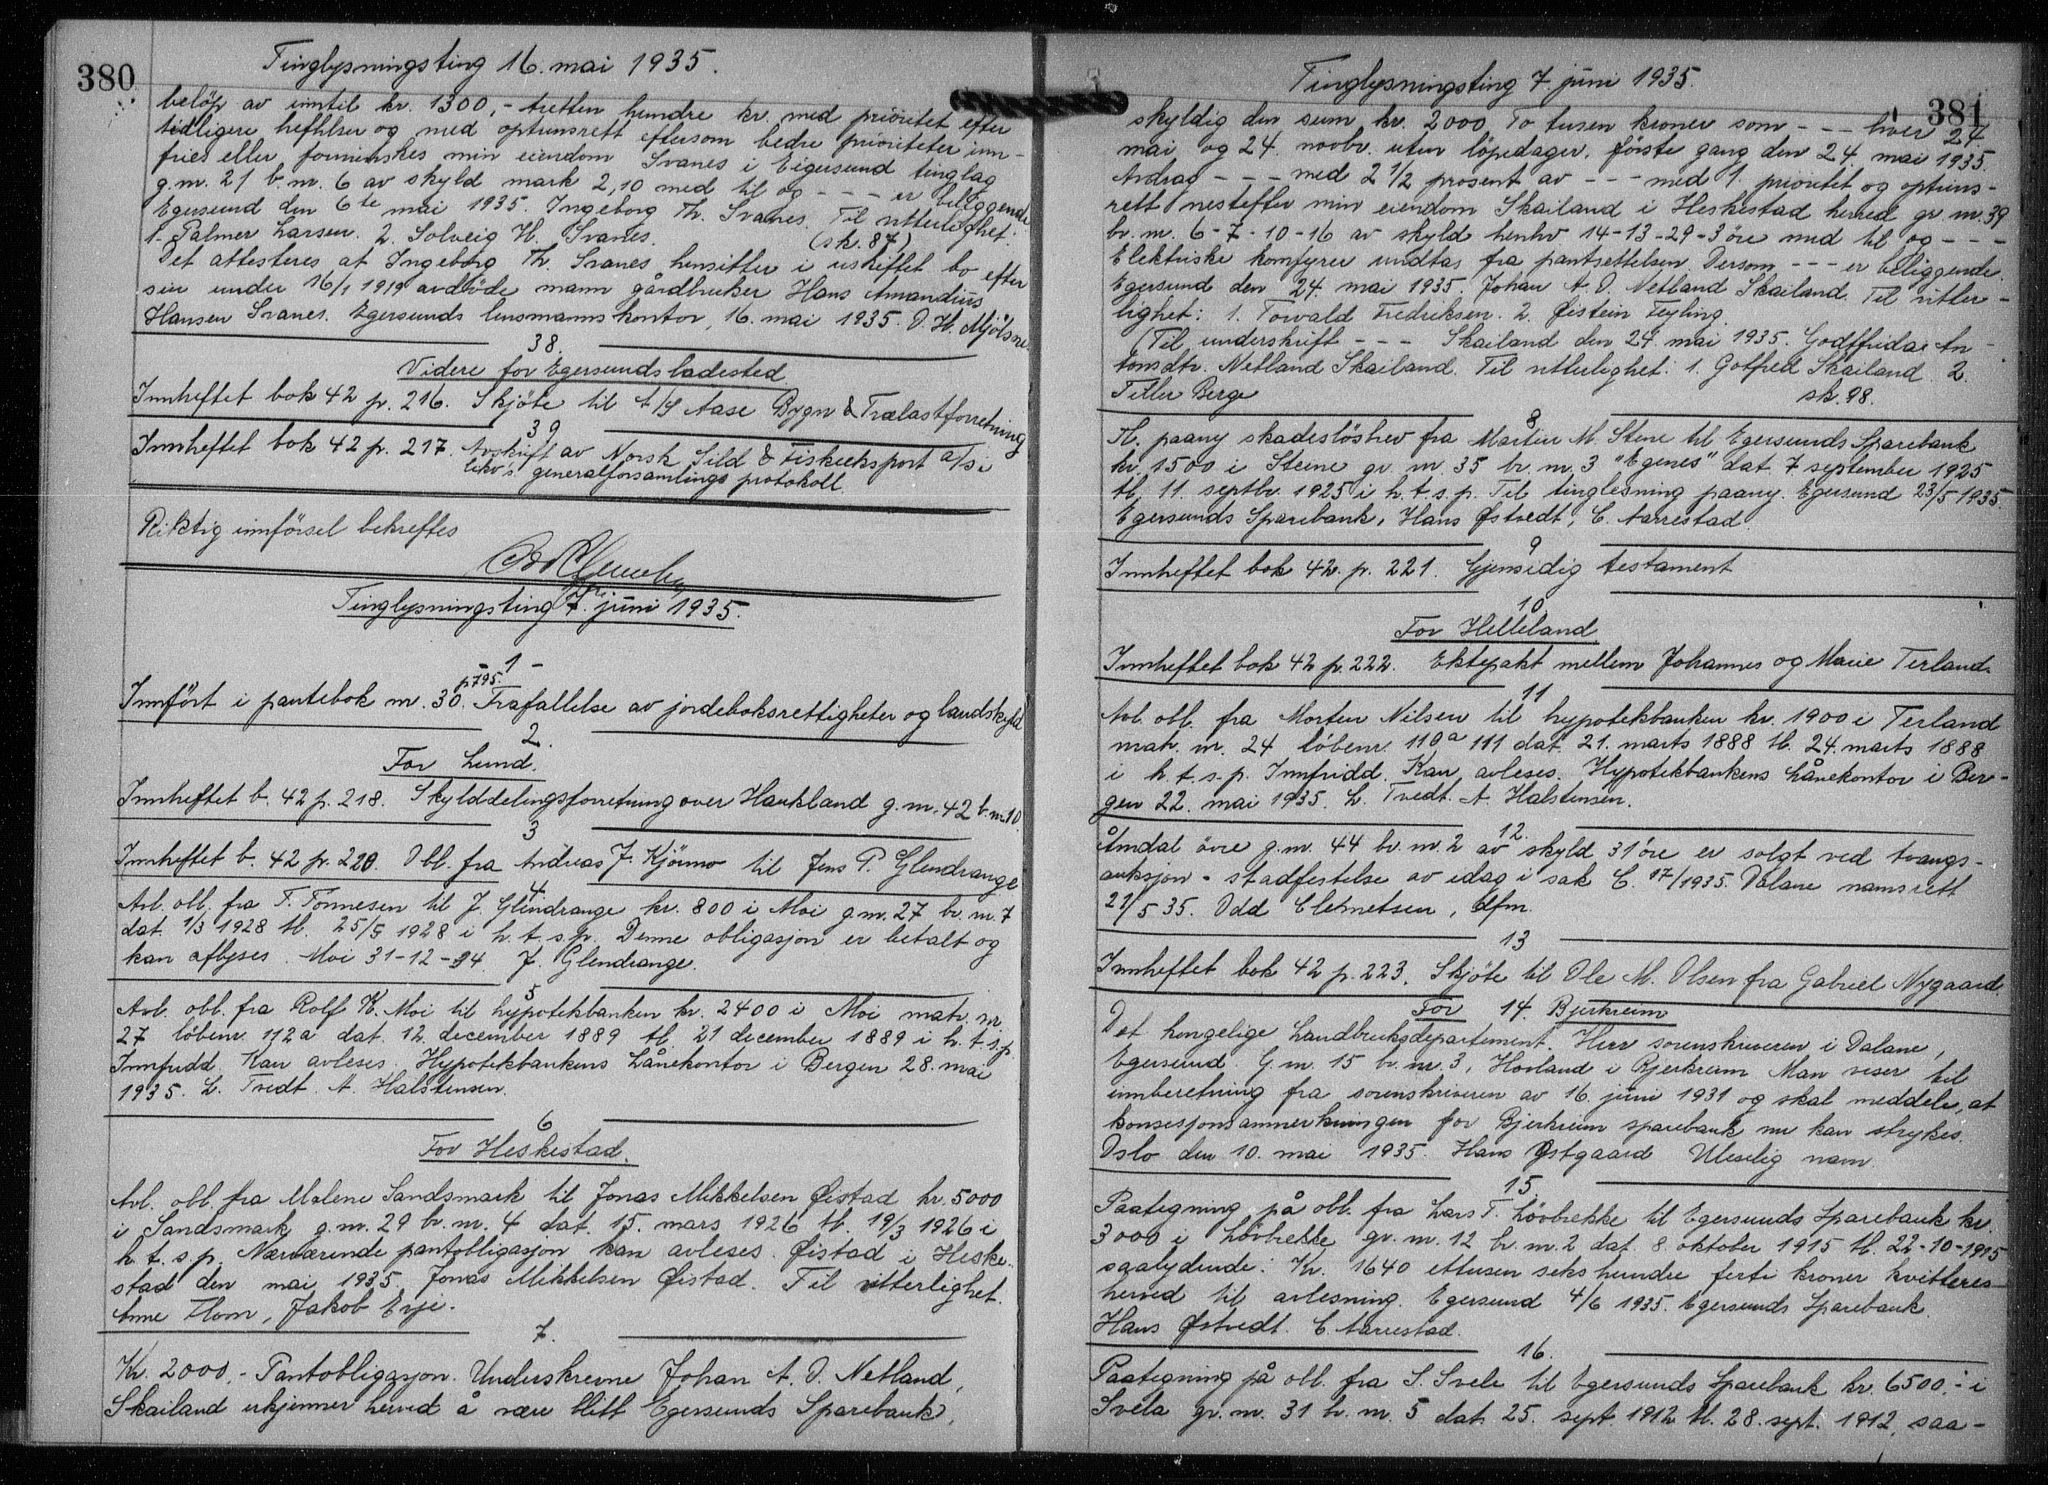 380
Tinglysningsting 16. mai 1935.
beløp av inntil kr. 1300,- tretten hundre kr. med prioritet efter
tidligere heftelser og med optrinsrett eftersom bedre prioriteter inn-
fries eller forminskes min eiendom Svanes i Eigersund tinglag
g.nr. 21 b.nr. 6 av skyld mark 2,10 med til og - - - er beliggende
Egersund den 6te mai 1935. Ingeborg Th. Svanes. Til vitterlighet:
1. Palmer Larsen. 2. Solveig H. Svanes. (sk. 84)
Det attesteres at Ingeborg Th. Svanes hensitter i uskiftet bo efter
sin under 16/1 1919 avdöde mann gårdbruker Hans Amandius
Hansen Svanes. Egersunds lensmannskontor, 16. mai 1935. O. H. Mjölsnes
38.
Videre for Egersunds ladested
Innheftet bok 42 p. 216. Skjöte til A/S Aase Bygn & Trælastforretning
39
Innheftet bok 42 p. 217. Avskrift av Norsk Sild & Fiskeeksport a/s i
likv's generalforsamlings protokoll.
Riktig innförsel bekreftes
Tinglysningsting 7. juni 1935.
- 1 -
p 795.
Innfört i pantebok nr. 30. Frafallelse av jordeboksrettigheter og landskyld
2.
For Lund.
Innheftet b. 42 p. 218. Skylddelingsforretning over Haukland g.nr. 42 b.nr 10.
3
Innheftet b. 42 p. 220. Obl. fra Andreas J. Kjörmo til Jens P. Glendrange
4.
Avl. obl. fra T. Tönnesen til J. Glendrange kr. 800 i Moi g.nr. 27 br.nr. 7
dat. 1/3 1928 tl. 25/5 1928 i h.t.s.p. Denne obligasjon er betalt og
kan aflyses. Moi 31-12-34. J. Glendrange.
5
Avl. obl. fra Rolf K. Moi til hypotekbanken kr. 2400 i Moi matr. nr.
27 löbenr. 112a dat. 12. december 1889 tl. 21 december 1889 i h.t.s.p.
Innfridd. Kan avleses. Hypotekbankens Lånekontor i Bergen 28. mai
1935. L. Tvedt. A. Halstensen.
6
For Heskestad.
Avl. obl. fra Malene Sandsmark til Jonas Mikkelsen Øistad kr. 5000
i Sandsmark g.nr. 29 br.nr. 4 dat. 15. mars 1926 tl. 19/3 1926 i
h.t.s.p. Nærværende pantobligasjon kan avleses. Øistad i Heske-
stad den mai 1935. Jonas Mikkelsen Øistad. Til vitterlighet.
Anne Hom, Jakob Eije.
7.
Kr. 2000,- Pantobligasjon. Underskrevne Johan A. O. Netland,
Skailand erkjenner herved å være blitt Egersunds Sparebank,
Tinglysningsting 7. juni 1935.
381
skyldig den sum kr. 2000 To tusen kroner som - - - hver 24
mai og 24. novbr. uten löpedager, förste gang den 24. mai 1935.
Avdrag - - - med 2 1/2 prosent av - - - med 1. prioritet og optrins-
rett nestefter min eiendom Skailand i Heskestad herred gr. nr. 39
br. nr. 6-7-10-16 av skyld henhv 14-13-29-3 öre med til og - - -
Elektriske komfyrer undtas fra pantsettelsen. Dersom - - - er beliggende.
Egersund den 24. mai 1935. Johan A. O. Netland Skailand. Til vitter-
lighet: 1. Torvald Fredriksen. 2. Øistein Feyling.
(Til underskrift - - - Skailand den 24. mai 1935. Godffrida An-
tonsdtr. Netland Skailand. Til vitterlighet: 1. Gotfred Skailand. 2.
Teller Berge sk. 98.
8
Tl. paany skadeslösbrev fra Martin M. Stene til Egersunds Sparebank
kr. 1500 i Steine gr. nr. 35 br. nr. 3 "Egenes" dat. 7 september 1925
tl. 11. septbr. 1925 i h.t.s.p. Til tinglesning paany. Egersund 23/5 1935.
Egersunds Sparebank, Hans Østvedt, C. Aarrestad.
9
Innheftet bok 42. p. 221. Gjensidig testament
10
For Helleland
Innheftet bok 42 p. 222. Ektepakt mellem Johannes og Marie Terland.
11
Avl. obl. fra Morten Nilsen til hypotekbanken kr. 1900 i Terland
matr. nr. 24 löbenr. 110a 111 dat. 21. marts 1888 tl. 24. marts 1888
i h.t.s.p. Innfridd. Kan avleses. Hypotekbankens Lånekontor i Ber-
gen 22. mai 1935. L. Tvedt. A. Halstensen.
12.
Åmdal övre g.nr. 44 br.nr. 2 av skyld 31 öre er solgt ved tvangs-
auksjon - stadfestelse av idag i sak C. 17/1935. Dalane namsrett
21/5 35. Odd Clemetsen, dfm.
13
Innheftet bok 42 p. 223. Skjöte til Ole M. Olsen fra Gabriel Nygaard
For 14. Bjerkreim
Det kongelige Landbruksdepartement. Herr sorenskriveren i Dalane,
Egersund. G.nr. 15 br.nr. 3, Hovland i Bjerkreim Man viser til
innberetning fra sorenskriveren av 16. juni 1931 og skal meddele, at
konsesjonsanmerkningen for Bjerkreim sparebank nu kan strykes.
Oslo den 10. mai 1935. Hans Østgaard Uleselig navn.
15
Paategning på obl. fra Lars T. Lövbrekke til Egersunds Sparebank kr.
3000 i Lövbrekke gr. nr. 12 br. nr. 2 dat. 8. oktober 1915 tl. 22-10-1915
saalydende: Kr. 1640 ettusen seks hundre førti kroner kvitteres
herved til avlesning. Egersund 4/6 1935. Egersunds Sparebank
Hans Østvedt. C. Aarrestad.
16.
Paategning på obl. fra S. Svele til Egersunds Sparebank kr. 6500,- i
Svela gr. nr. 31 br. nr. 5 dat. 25. sept. 1912 tl. 28. sept. 1912, saa-